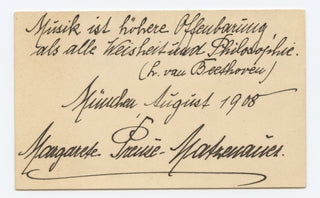 Musik ist höhere Offenbarung
als alle Weisheit und Philosophie.
(L. van Beethoven)
München August 1908
Margarete Preuse-Matzenauer.